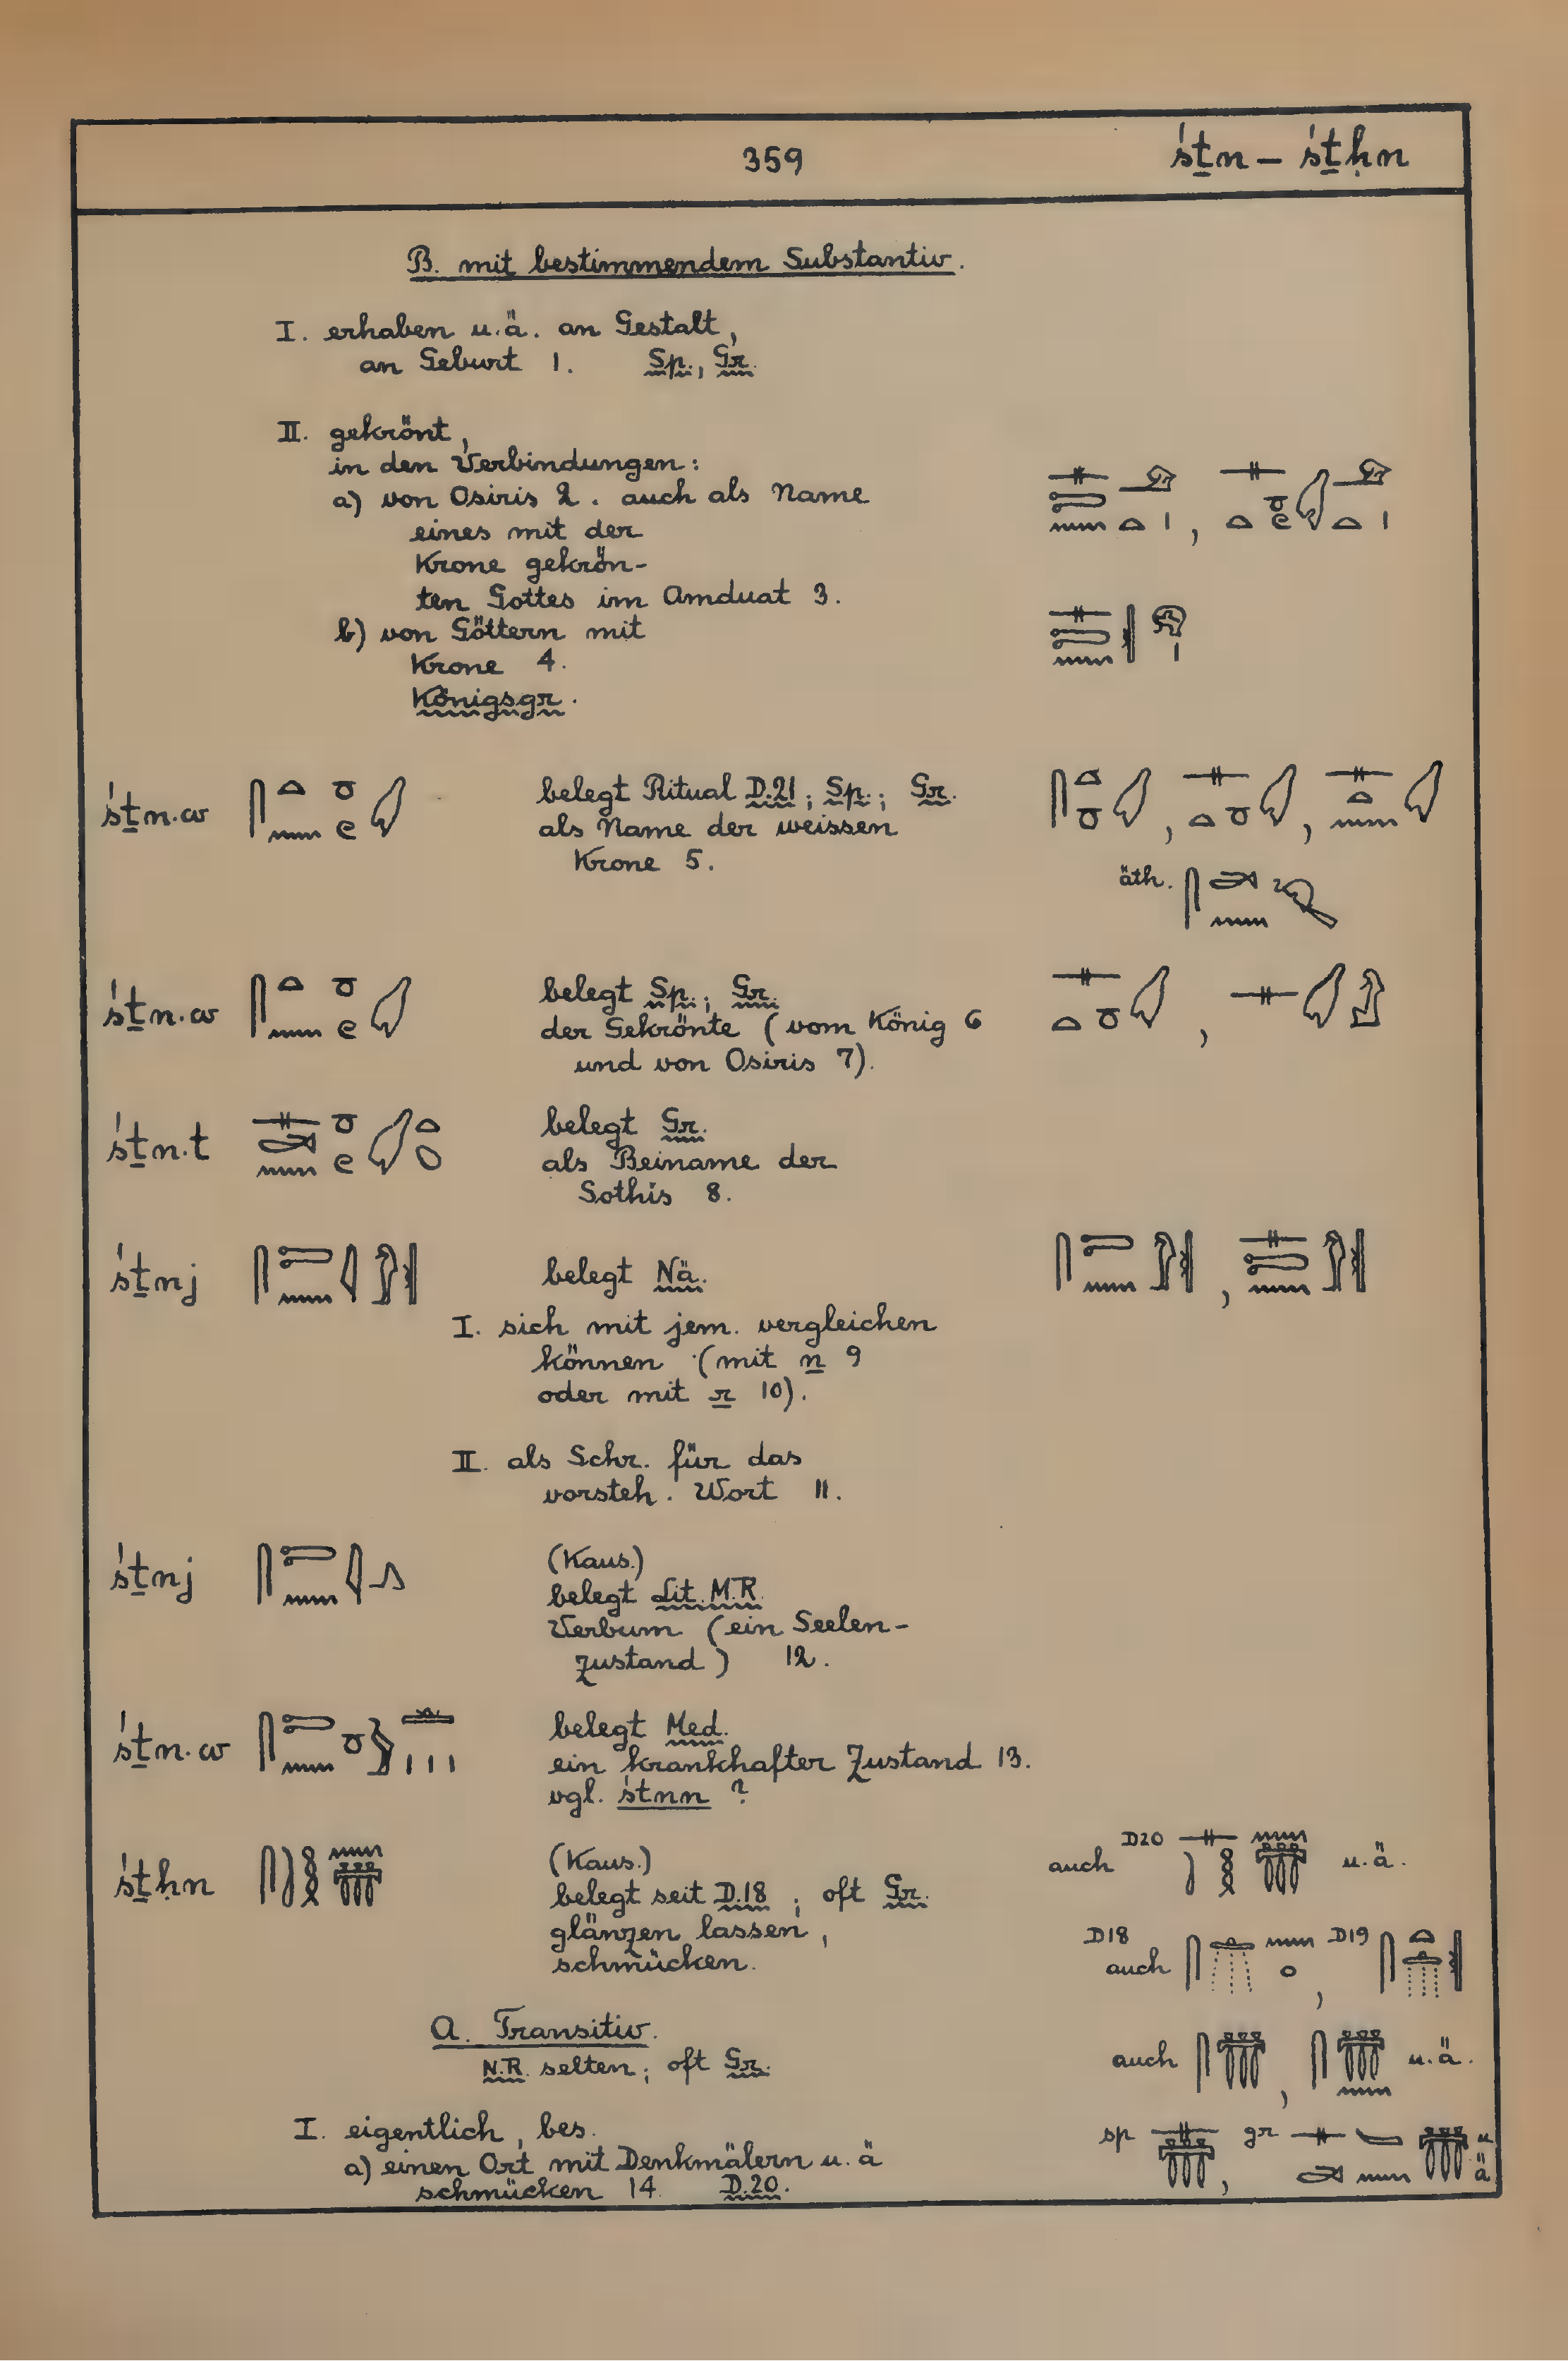 359
śṯn – śṯḥn
B. mit bestimmendem Substantiv.
I. erhaben u.ä. an Gestalt,
an Geburt 1. Sp., Gr.
II. gekrönt,
in den Verbindungen:
a) von Osiris 2. auch als Name
eines mit der
Krone gekrön-
ten Gottes im Amduat 3.
b) von Göttern mit
Krone 4.
Königsgr.
śṯn.w
belegt Ritual D.21; Sp.; Gr.
als Name der weissen
Krone 5.
äth.
śṯn.w
belegt Sp.; Gr.
der Gekrönte (vom König 6
und von Osiris 7).
śṯn.t
belegt Gr.
als Beiname der
Sothis 8.
śṯnj
belegt Nä.
I. sich mit jem. vergleichen
können (mit n 9
oder mit r 10).
II. als Schr. für das
vorsteh. Wort 11.
śṯnj
(Kaus.)
belegt Lit. M.R.
Verbum (ein Seelen-
zustand) 12.
śṯn.w
belegt Med.
ein krankhafter Zustand 13.
vgl. śtnn ?
śṯḥn
(Kaus.)
belegt seit D.18; oft Gr.
glänzen lassen,
schmücken.
auch D20 u.ä.
D18 auch D19
A. Transitiv.
N.R. selten; oft Gr.
auch u.ä.
I. eigentlich, bes.
a) einen Ort mit Denkmälern u.ä
schmücken 14. D.20.
sp gr u ä